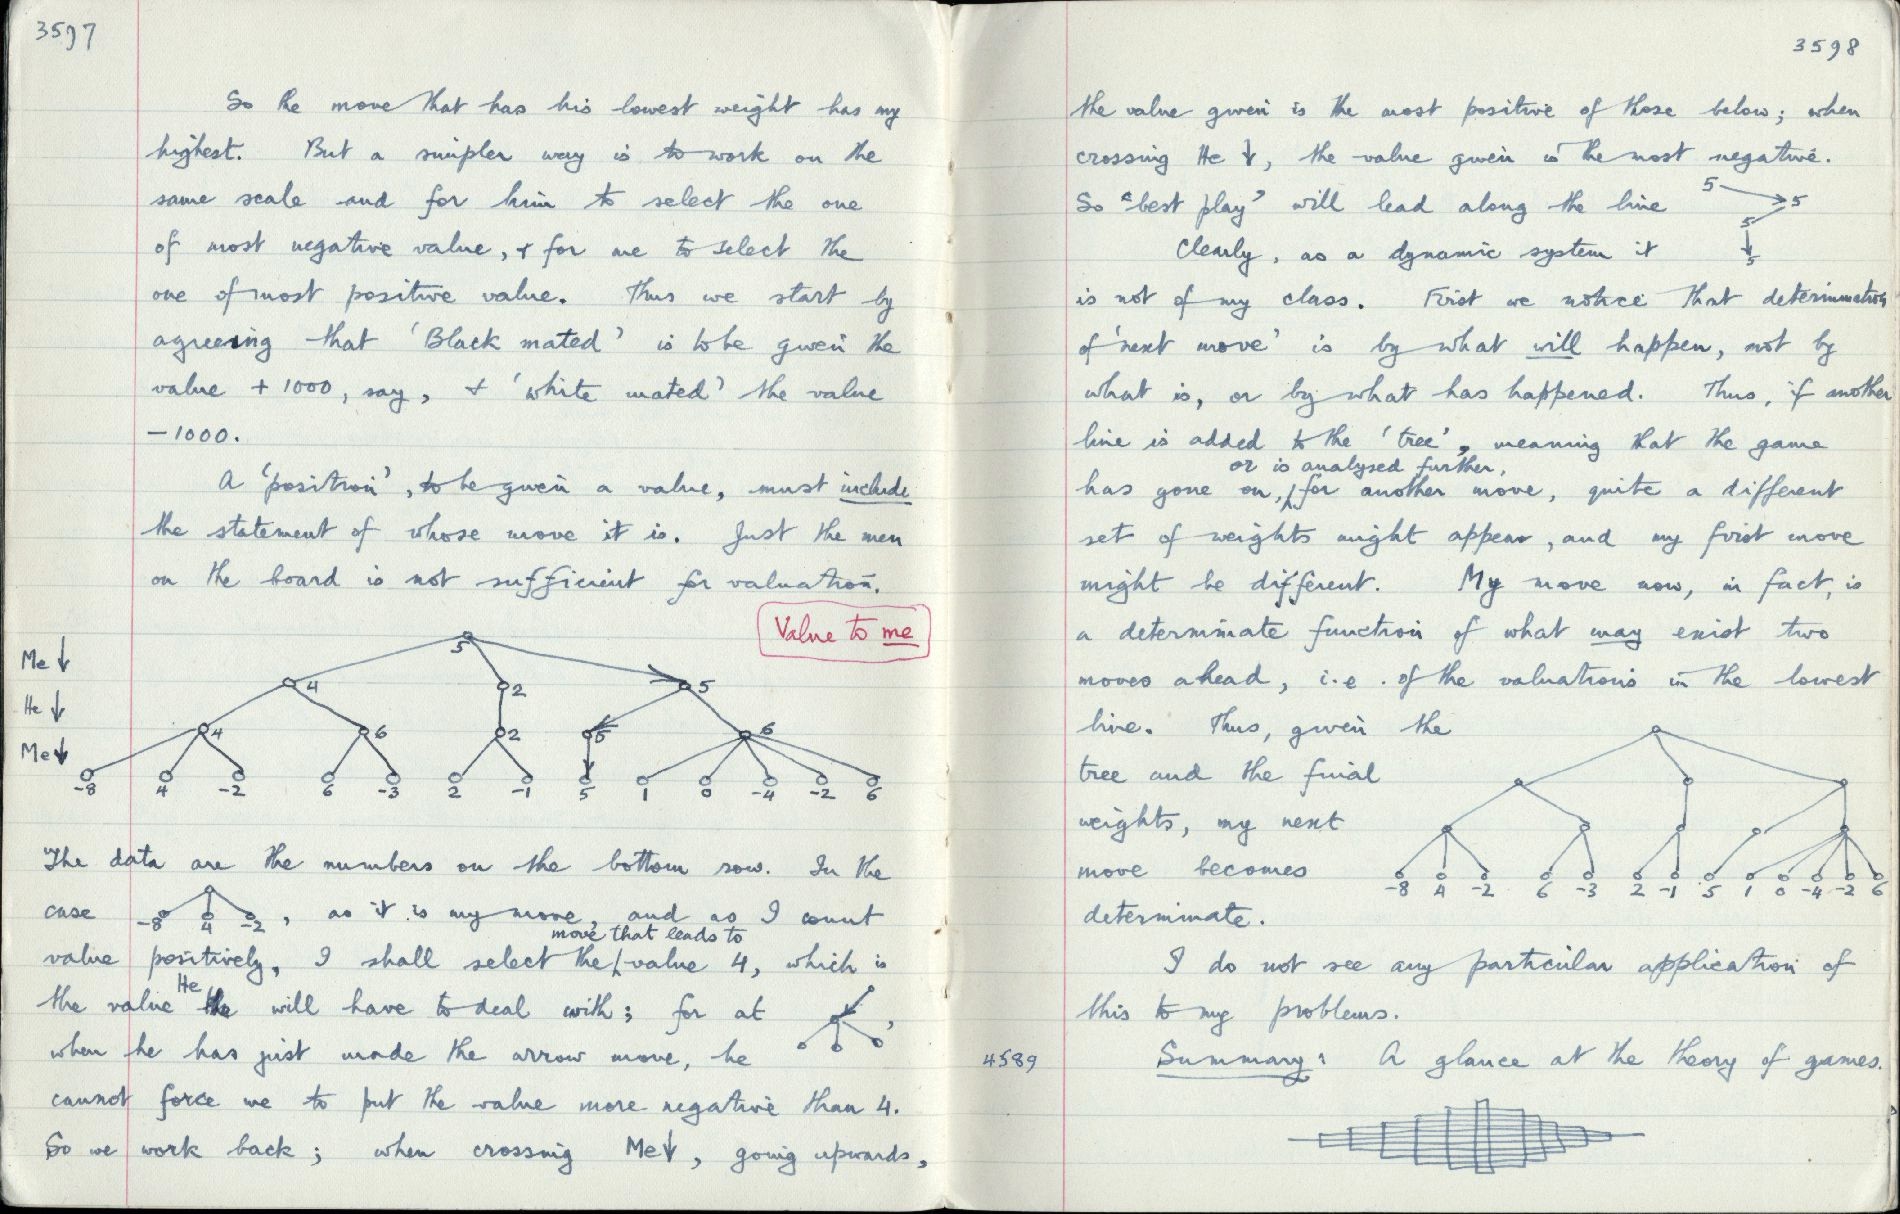 3597
So the move that has his lowest weight has my
highest. But a simpler way is to work on the
same scale and for him to select the one
of most negative value, & for me to select the
one of most positive value. Thus we start by
agreeing that 'Black mated' is to be given the
value + 1000, say, & 'white mated' the value
-1000.
A 'position', to be given a value, must include
the statement of whose move it is. Just the men
on the board is not sufficient for valuation.
Value to me
5
Me ↓
4 2 5
He ↓
4 6 2 5 6
Me ↓
-8 4 -2 6 -3 2 -1 5 1 0 -4 -2 6
The data are the numbers on the bottom row. In the
case -8 4 -2, as it is my move, and as I count
move that leads to
value positively, I shall select the value 4, which is
He
the value will have to deal with; for at ,
when he has just made the arrow move, he
cannot force me to put the value more negative than 4.
So we work back; when crossing Me↓, going upwards,
3598
the value given is the most positive of those below; when
crossing He ↓, the value given is the most negative.
So 'best play' will lead along the line 5 5 5 5
Clearly, as a dynamic system it
is not of my class. First we notice that determination
of 'next move' is by what will happen, not by
what is, or by what has happened. Thus, if another
line is added to the 'tree', meaning that the game
or is analysed further,
has gone on, for another move, quite a different
set of weights might appear, and my first move
might be different. My move now, in fact, is
a determinate function of what may exist two
moves ahead, i.e. of the valuations in the lowest
line. Thus, given the
tree and the final
weights, my next
move becomes
-8 4 -2 6 -3 2 -1 5 1 0 -4 -2 6
determinate.
I do not see any particular application of
this to my problems.
4589
Summary: A glance at the theory of games.